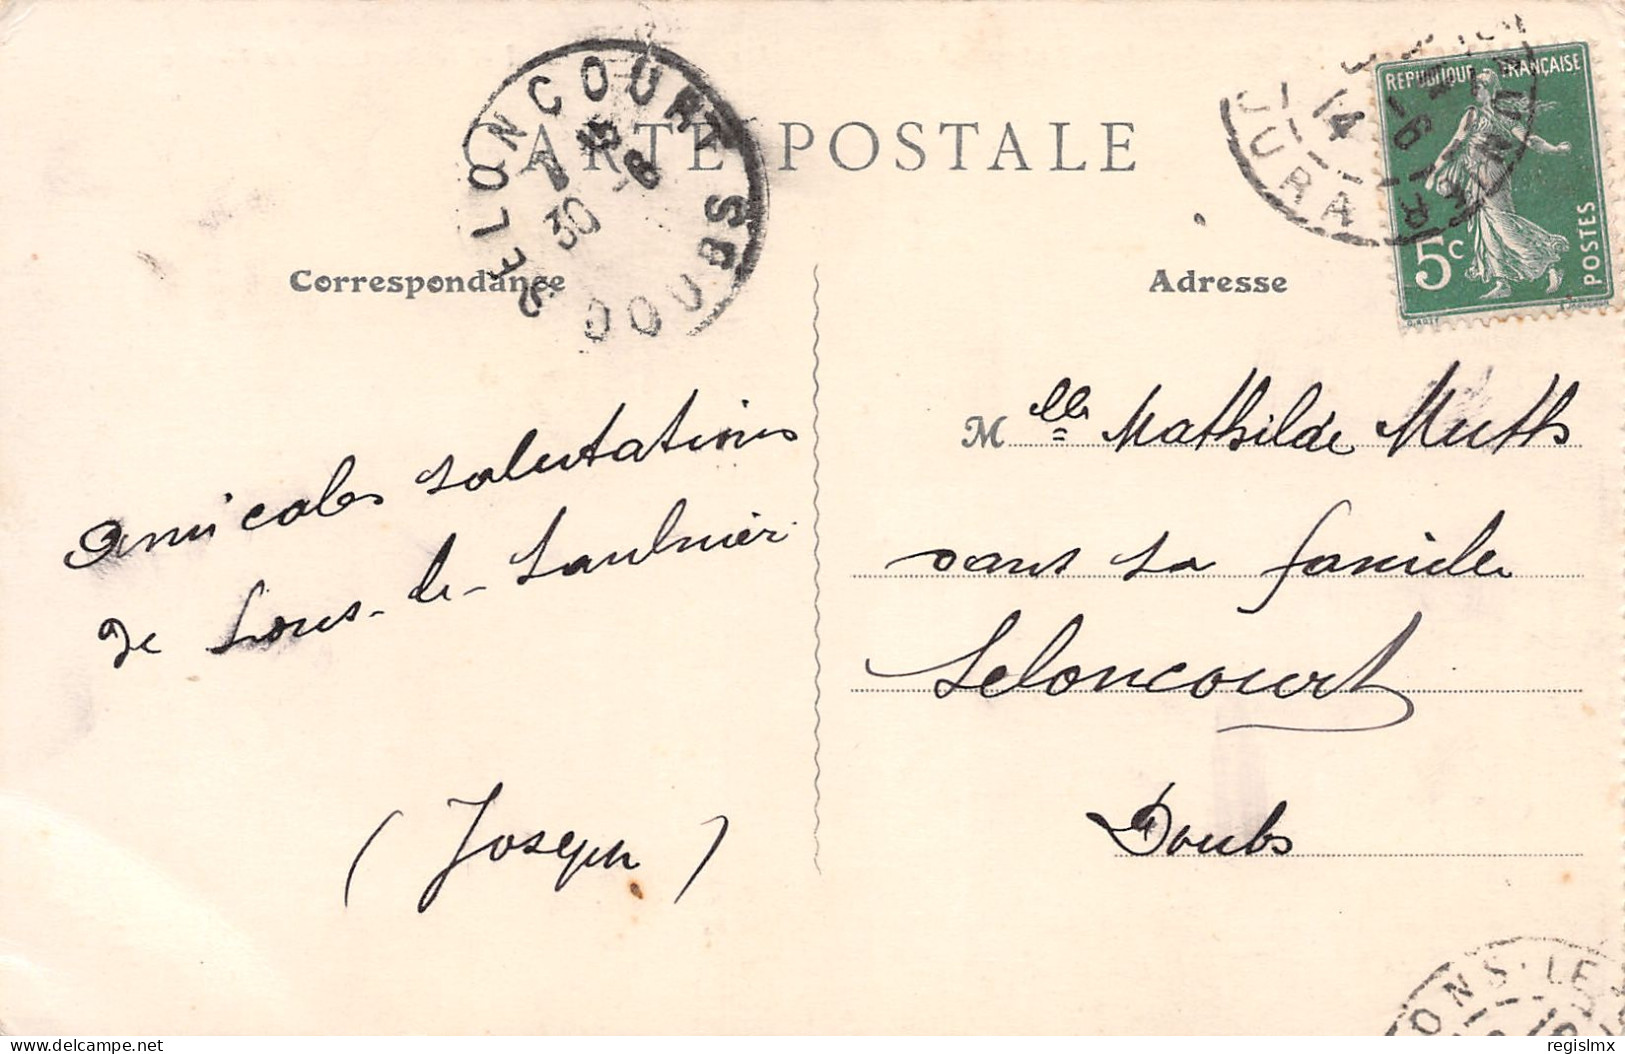 CARTE POSTALE
SELONCOURT
DOUBS
7 30
15 -6
JURA
14 -6
REPUBLIQUE FRANÇAISE
5c
POSTES
Correspondance
Adresse
amicales salutations
de Lons-le-Saulnier
(Joseph)
Mlle Mathilde Muths
dans sa famille
Seloncourt
Doubs
ONS-LE
delcampe.net
regislmx